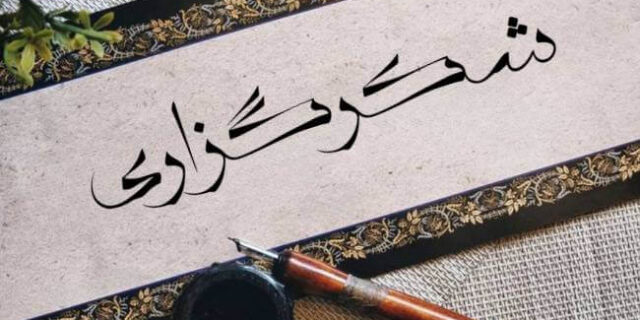 شکرگزاری